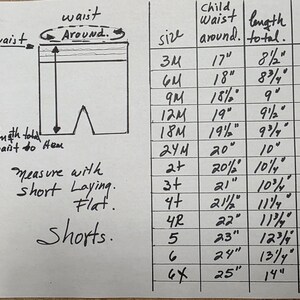 waist
Around.
waist
total
waist to Hem
Measure with
short Laying.
Flat.
Shorts.
size Child Waist around. length total.
3M 17" 8½"
6M 18" 8¾"
9M 18½" 9"
12M 19" 9½"
18M 19½" 9¾"
24M 20" 10"
2t 20½" 10¼"
3t 21" 10¾"
4t 21½" 11¼"
4R 22" 11¾"
5 23" 12¾"
6 24" 13¼"
6X 25" 14"